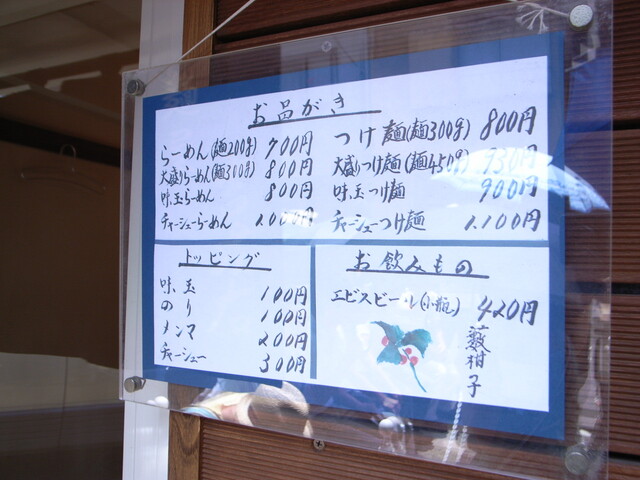 お品がき
らーめん(麺200g) 700円
大盛りらーめん(麺300g) 800円
味玉らーめん 800円
チャーシューらーめん 1,000円
つけ麺(麺300g) 800円
大盛りつけ麺(麺450g) 930円
味玉つけ麺 900円
チャーシューつけ麺 1,100円
トッピング
味玉 100円
のり 100円
メンマ 200円
チャーシュー 300円
お飲みもの
エビスビール(小瓶) 420円
薮柑子